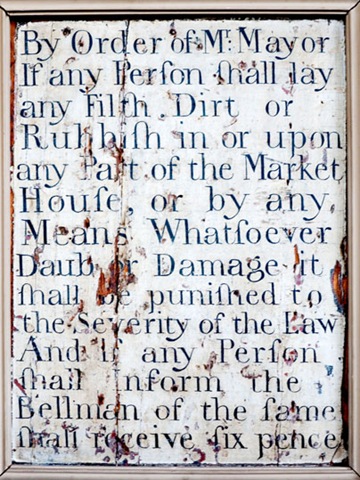 By Order of Mr. Mayor
If any Perſon ſhall lay
any Filth Dirt or
Rubbiſh in or upon
any Part of the Market
Houſe, or by any
Means Whatſoever
Daub or Damage it
ſhall be puniſhed to
the Severity of the Law
And if any Perſon
ſhall inform the
Bellman of the ſame
ſhall receive ſix pence